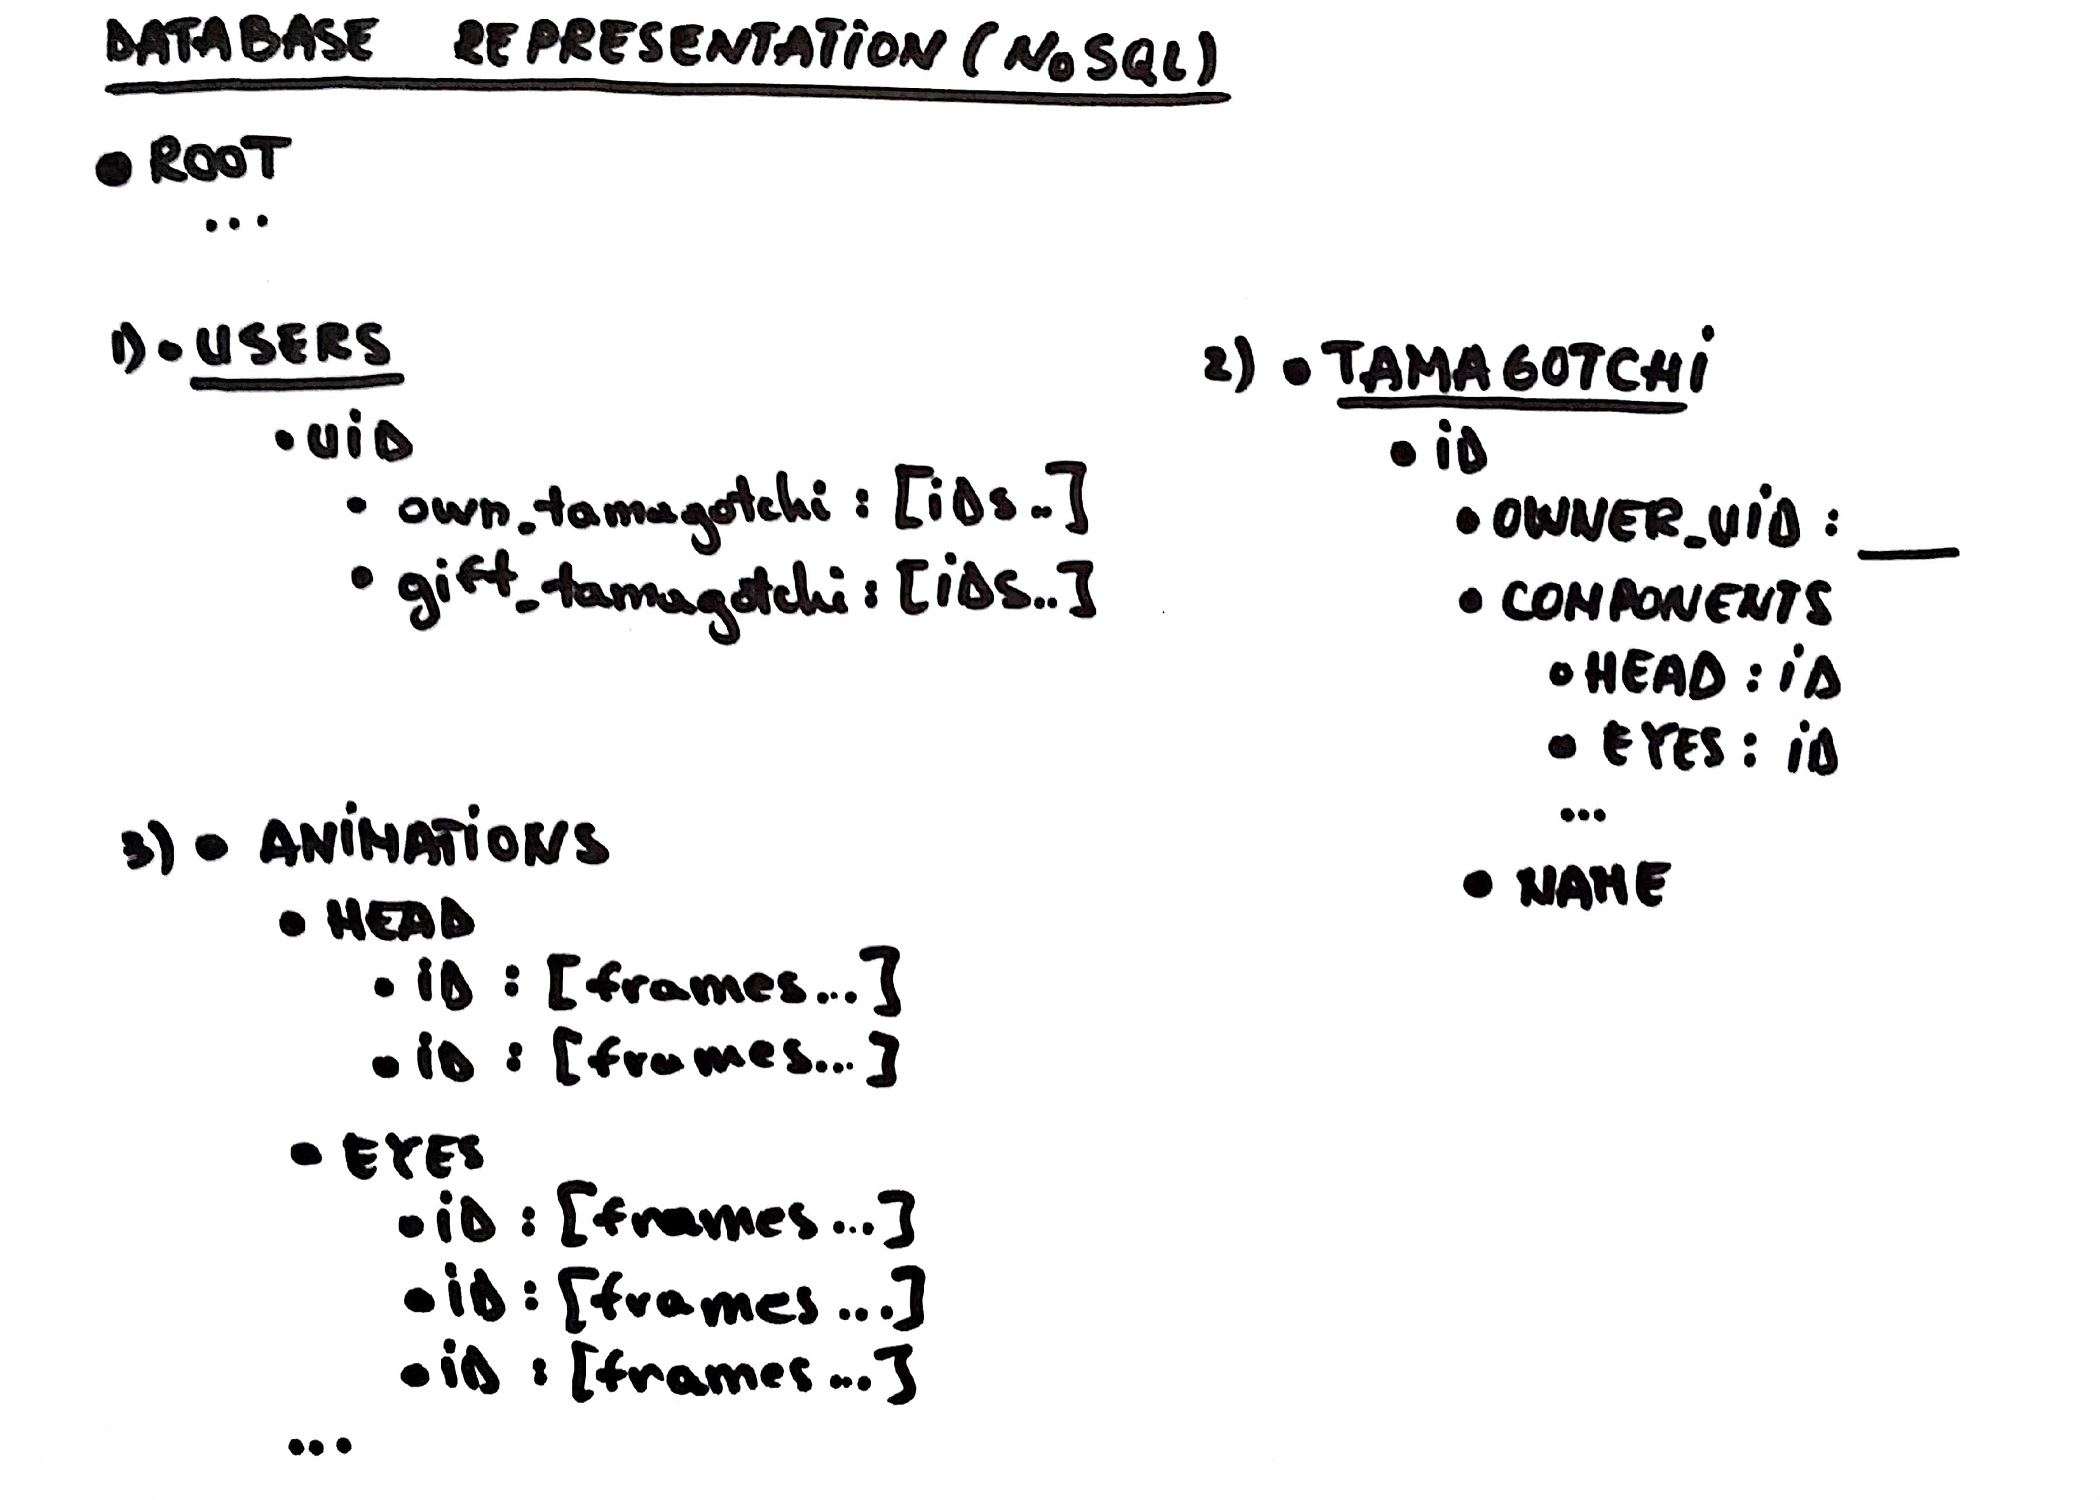 DATABASE REPRESENTATION (NoSQL)
• ROOT
...
1) • USERS
• UiD
• own_tamagotchi : [iDs..]
• gift_tamagotchi : [iDs..]
2) • TAMAGOTCHi
• iD
• OWNER_UiD : ___
• COMPONENTS
• HEAD : iD
• EYES : iD
...
• NAME
3) • ANiMATiONS
• HEAD
• iD : [frames...]
• iD : [frames...]
• EYES
• iD : [frames...]
• iD : [frames...]
• iD : [frames...]
...